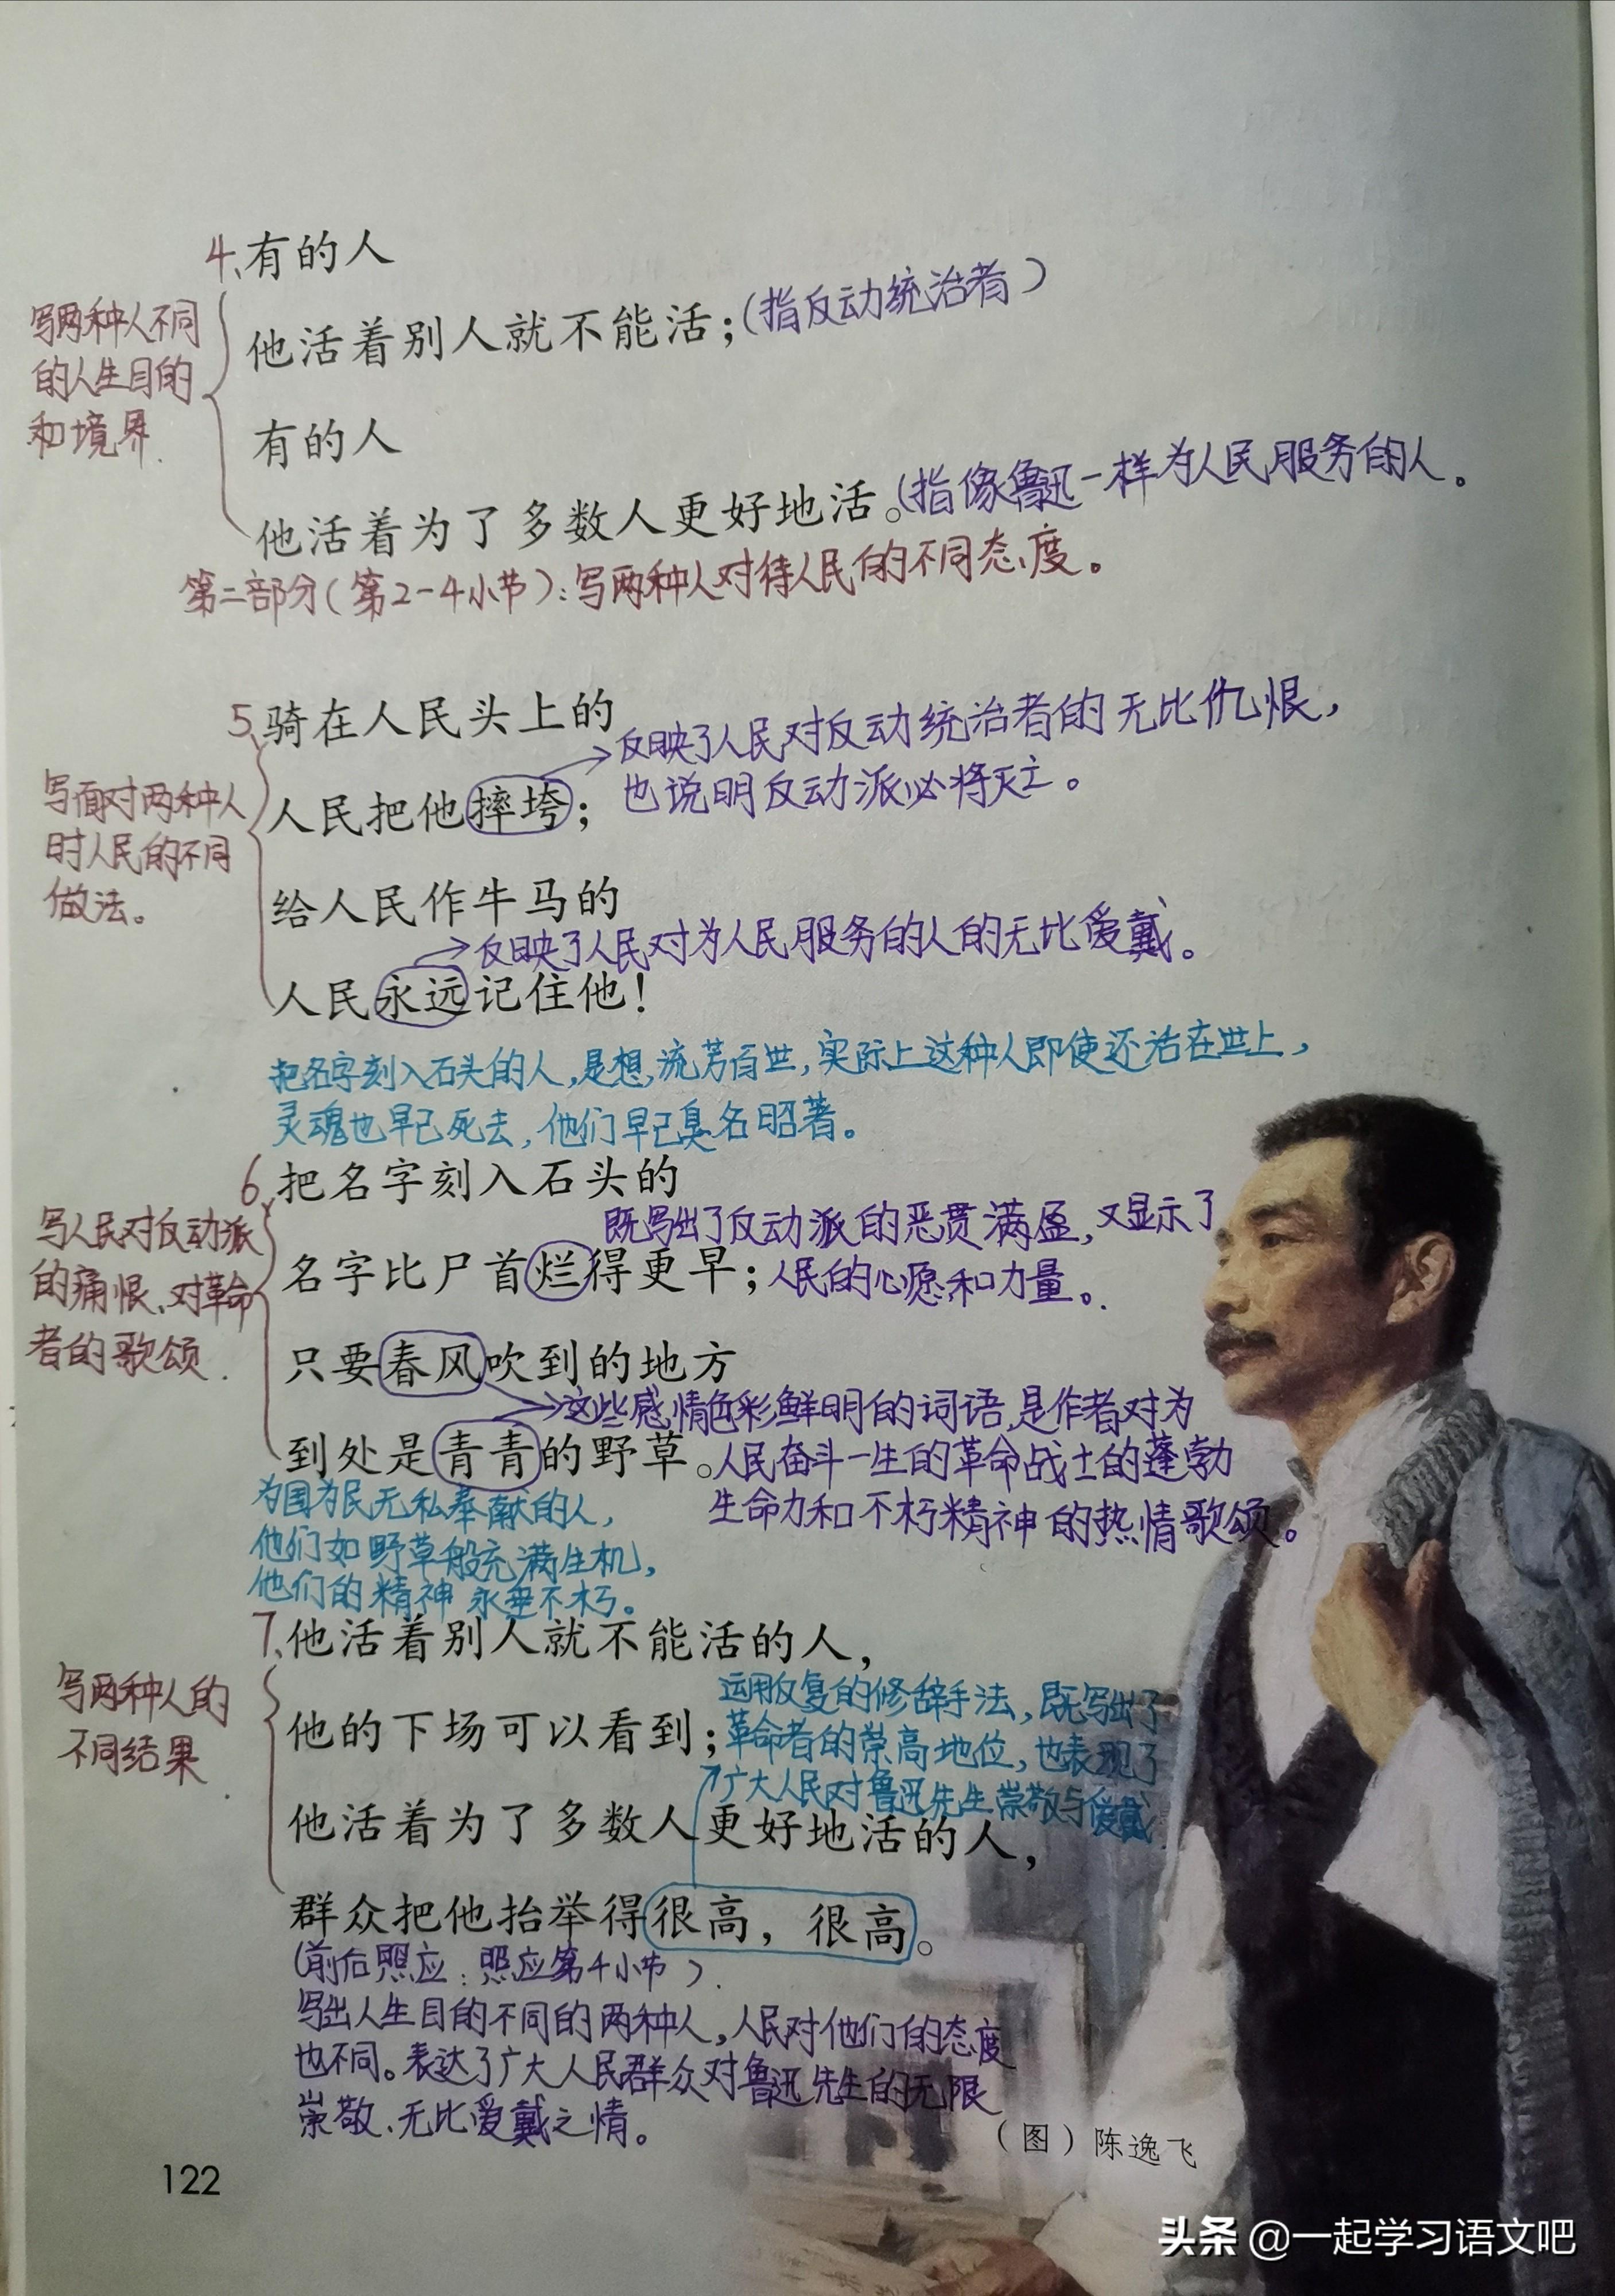 4、有的人
他活着别人就不能活；(指反动统治者)
写两种人不同
的人生目的
和境界.
有的人
他活着为了多数人更好地活。(指像鲁迅一样为人民服务的人。
第二部分(第2-4小节):写两种人对待人民的不同态度。
5、骑在人民头上的
反映了人民对反动统治者的无比仇恨，
人民把他摔垮；
也说明反动派必将灭亡。
写面对两种人
时人民的不同
做法。
给人民作牛马的
反映了人民对为人民服务的人的无比爱戴。
人民永远记住他！
把名字刻入石头的人,是想,流芳百世,实际上这种人即使还活在世上,
灵魂也早已死去,他们早已臭名昭著。
6、把名字刻入石头的
既写出了反动派的恶贯满盈,又显示了
名字比尸首烂得更早；人民的心愿和力量。
写人民对反动派
的痛恨、对革命
者的歌颂.
只要春风吹到的地方
这些感情色彩鲜明的词语,是作者对为
到处是青青的野草。人民奋斗一生的革命战士的蓬勃
生命力和不朽精神的热情歌颂。
为国为民无私奉献的人,
他们如野草般充满生机,
他们的精神永垂不朽。
7、他活着别人就不能活的人，
写两种人的
不同结果
运用反复的修辞手法,既写出了
他的下场可以看到；革命者的崇高地位,也表现了
广大人民对鲁迅先生崇敬与爱戴
他活着为了多数人更好地活的人，
群众把他抬举得很高，很高。
(前后照应:照应第4小节).
写出人生目的不同的两种人,人民对他们的态度
也不同。表达了广大人民群众对鲁迅先生的无限
崇敬、无比爱戴之情。
（图）陈逸飞
122
头条 @一起学习语文吧